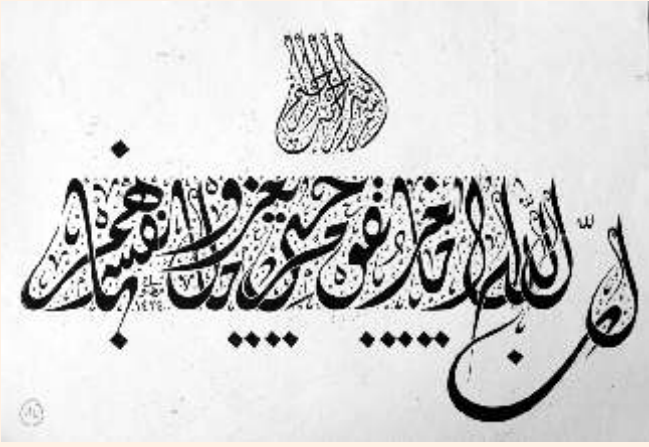 بسم الله الرحمن الرحيم
إن الله لا يغير ما بقوم حتى يغيروا ما بأنفسهم